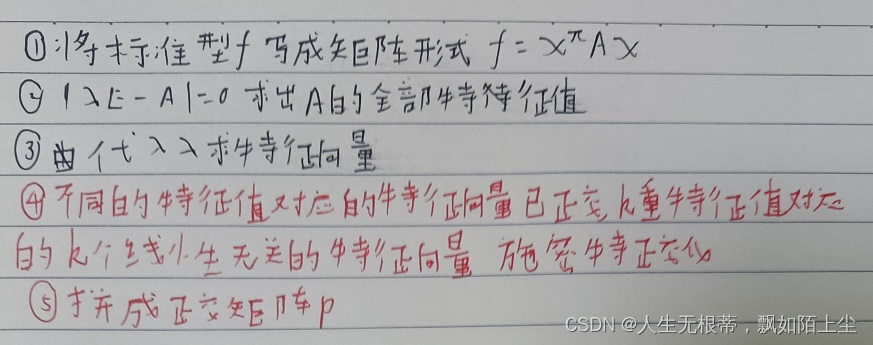 ①将标准型f 写成矩阵形式 f=xᵀAx
② |λE-A|=0 求出A的全部特特征值
③ 由代入λ求特征向量
④不同的特征值对应的特征向量已正交,k重特征值对应
的k个线性无关的特征向量 施密特正交化
⑤拼成正交矩阵p
CSDN @人生无根蒂,飘如陌上尘